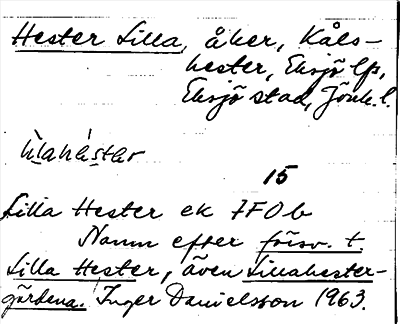 Hester Lilla, åker, Kåls-
hester, Eksjö lfs,
Eksjö stad, Jönk. l.
15
Lilla Hester ek 7F0b
Namn efter försv. t.
Lilla Hester, även Lillahester-
gärdena. Inger Danielsson 1963.